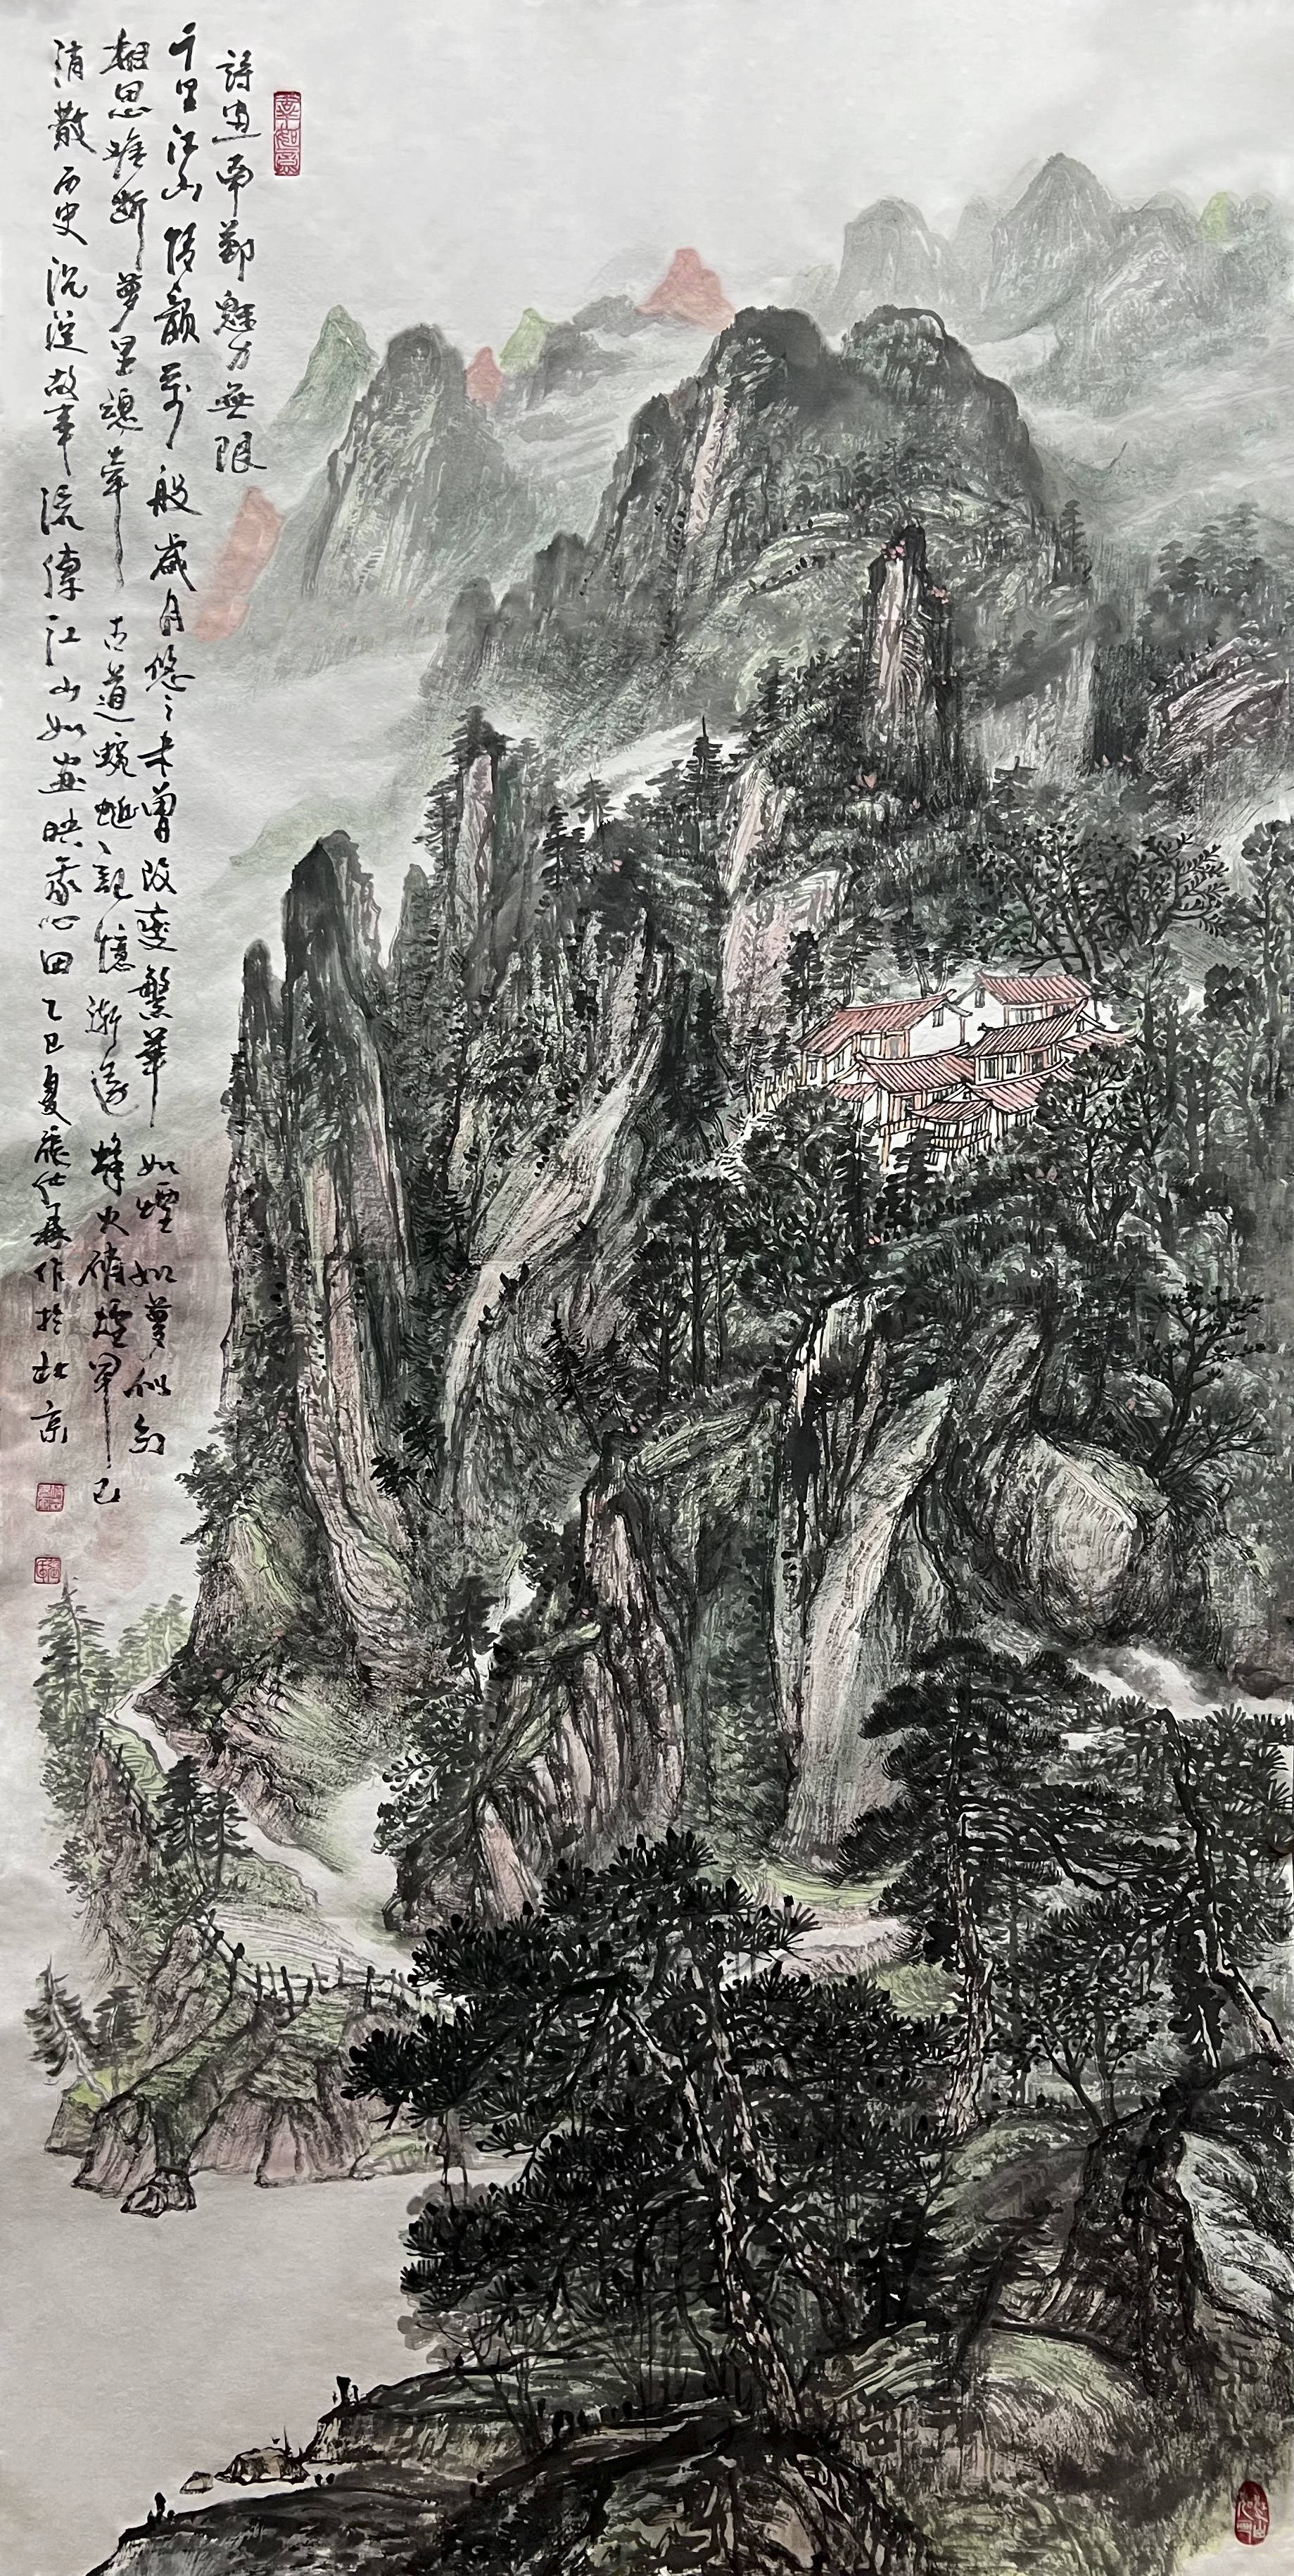 詩畫南鄭魅力無限
千里江山情韻萬般歲月悠悠未曾改變繁華如煙如夢似幻
相思难断夢里魂牽古道蜿蜒記憶漸遠烽火硝煙早已
消散历史沉淀故事流傳江山如画映我心田乙巳夏 仕森作於北京